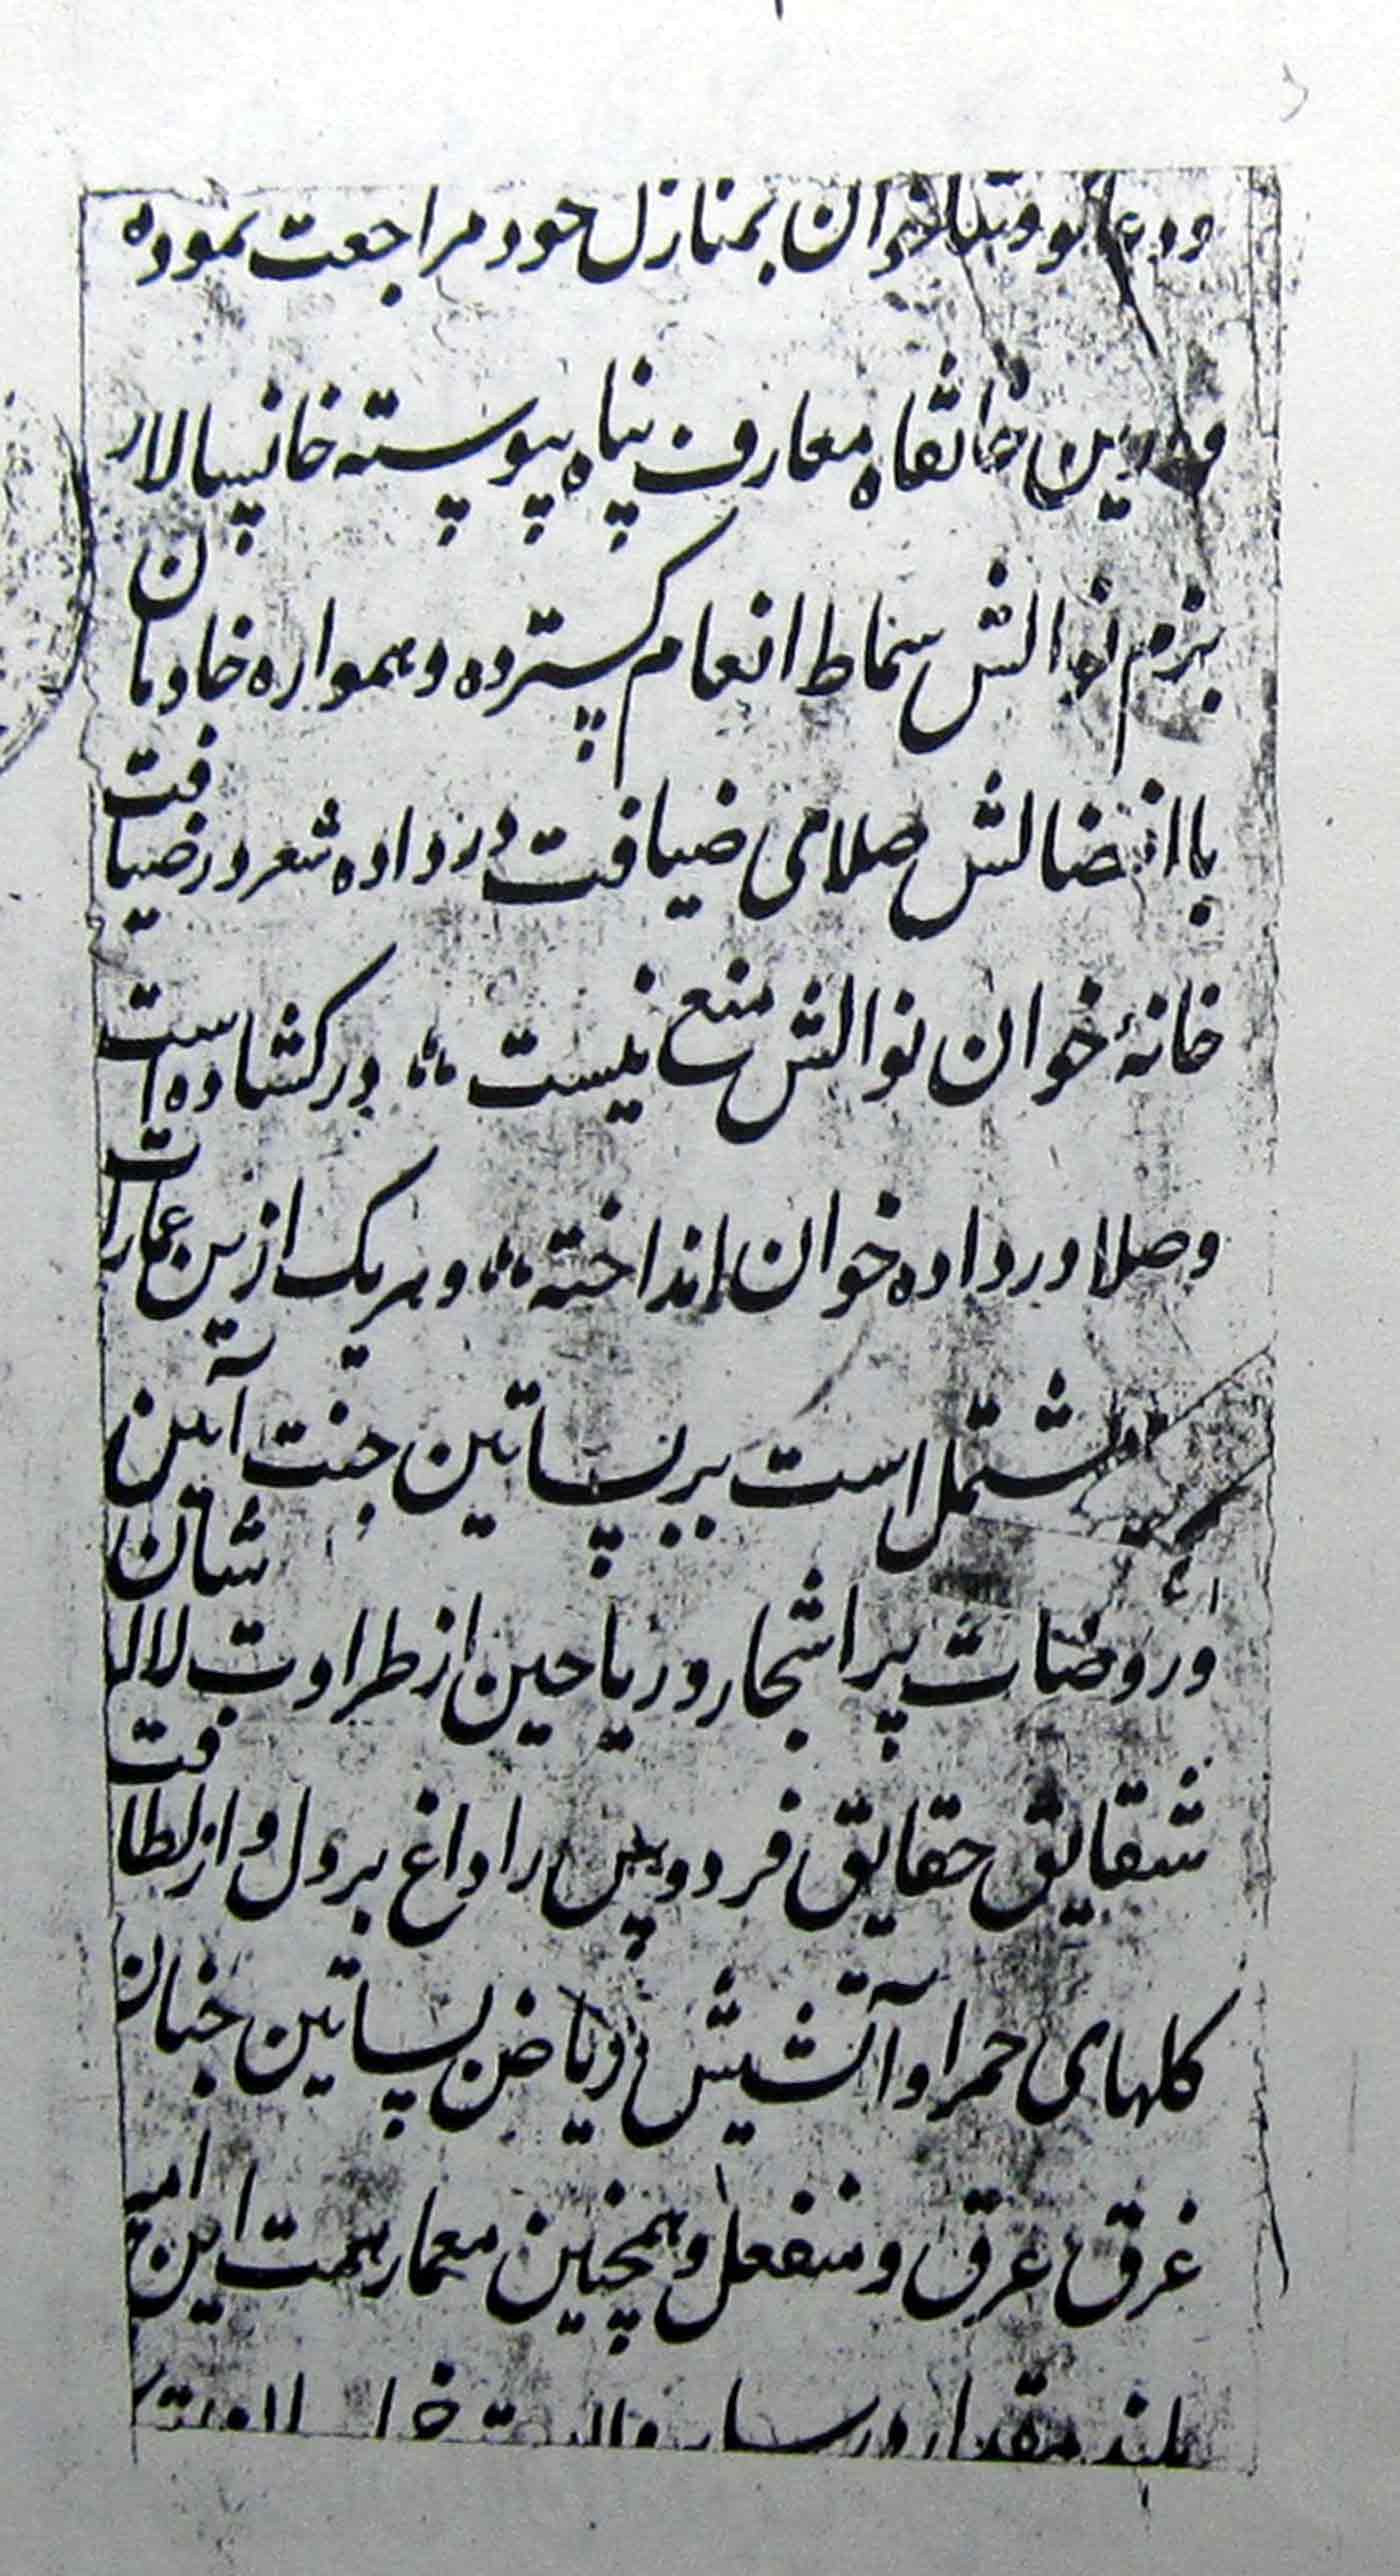 بمنازل خود مراجعت نموده
خانقاه معارف پناه پیوسته خانسالار
بزم نوالش سماط انعام گسترده و همواره خادمان
با افضالش صلای ضیافت در داده شعر در ضیافت
خانهٔ خوان نوالش منع نیست ،، در گشاده است
وصلا در داده خوان انداخته ،، و هر یک ازین عمارات
مشتمل است بر بساتین جنت آیین
و روضات پر اشجار و ریاحین از طراوت لاله شان
شقایق حقایق فردوس را داغ بر دل و از لطافت
کلهای حمرا و آتشیش ریاض بساتین جنان
غرق عرق و منفعل و همچنین معمار همت این امیر
بلند مقدار در